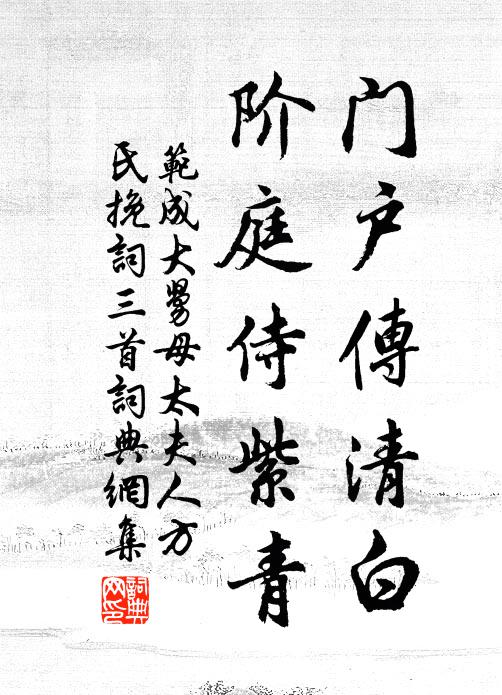 门户傳清白
阶庭侍紫青
範成大舅母太夫人方
氏挽詞三首詞典網集
詞典网印